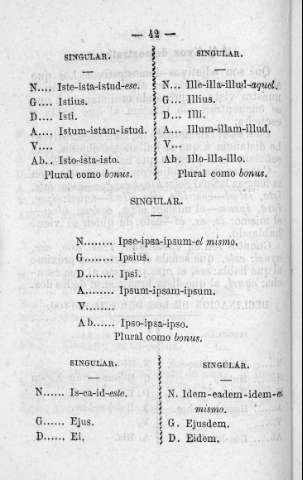 — 42 —
SINGULAR.
N.... Iste-ista-istud-ese.
G.... Istius.
D.... Isti.
A.... Istum-istam-istud.
V....
Ab.. Isto-ista-isto.
Plural como bonus.
SINGULAR.
N... Ille-illa-illud-aquel.
G... Illius.
D... Illi.
A... Illum-illam-illud.
V...
Ab. Illo-illa-illo.
Plural como bonus.
SINGULAR.
N........ Ipse-ipsa-ipsum-el mismo.
G........ Ipsius.
D........ Ipsi.
A........ Ipsum-ipsam-ipsum.
V........
Ab...... Ipso-ipsa-ipso.
Plural como bonus.
SINGULAR.
N...... Is-ea-id-este.
G...... Ejus.
D...... Ei.
SINGULAR.
N. Idem-eadem-idem-el
mismo.
G. Ejusdem.
D. Eidem.